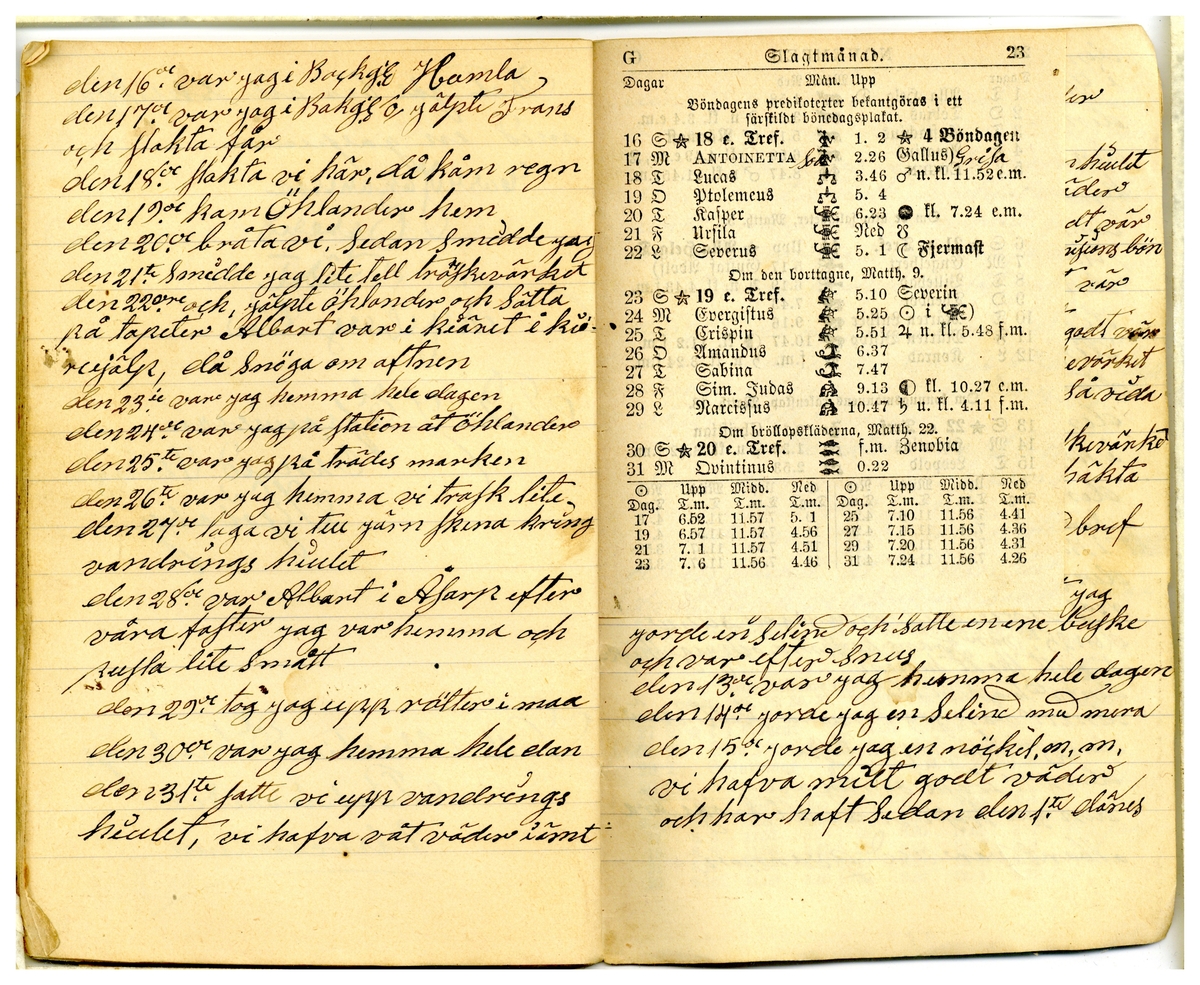 den 16de var jag i Backgl Hamla
den 17de var jag i Bakgl & jälpte Frans
och slakta får
den 18de slakta vi här, då kåm regn
den 19de kam Öhlander hem
den 20de bråta vi, sedan smedde jag
den 21te Smedde jag lite tell tröskevärket
den 22dre och, jälpte Öhlander och Sätta
på tapeter Albart var i kiäret i kö-
rejälp, då Snöga om aftnen
den 23ie var jag hemma hele dagen
den 24de var jag på station åt Öhlander
den 25te var jag på trädes marken
den 26te var jag hemma vi trask lite
den 27de laga vi till järn skena kring
vandrings hiulet
den 28de var Albart i Åsarp efter
våra faster jag var hemma och
pussla lite smått
den 29de tog jag upp rötter i maa
den 30de var jag hemma hele dan
den 31te satte vi upp vandrings
hiulet, vi hafva våt väder iämt
G Slagtmånad. 23
Dagar Mån. Upp
Böndagens predikotexter bekantgöras i ett
särskildt bönedagsplakat.
16 S ☆ 18 e. Tref. 1. 2 ☆ 4 Böndagen
17 M ANTOINETTA 2.26 Gallus) Grisa
18 T Lucas 3.46 ♂ n. kl. 11.52 e.m.
19 O Ptolemeus 5. 4
20 T Kasper 6.23 ● kl. 7.24 e.m.
21 F Ursila Ned ☋
22 L Severus 5. 1 ☾ Fjermast
Om den borttagne, Matth. 9.
23 S ☆ 19 e. Tref. 5.10 Severin
24 M Evergistus 5.25 ☉ i ♏)
25 T Crispin 5.51 ♃ n. kl. 5.48 f.m.
26 O Amandus 6.37
27 T Sabina 7.47
28 F Sim. Judas 9.13 ◐ kl. 10.27 e.m.
29 L Narcissus 10.47 ♄ u. kl. 4.11 f.m.
Om bröllopskläderna, Matth. 22.
30 S ☆ 20 e. Tref. f.m. Zenobia
31 M Qvintinus 0.22
☉ Upp Midd. Ned ☉ Upp Midd. Ned
Dag. T.m. T.m. T.m. Dag. T.m. T.m. T.m.
17 6.52 11.57 5. 1 25 7.10 11.56 4.41
19 6.57 11.57 4.56 27 7.15 11.56 4.36
21 7. 1 11.57 4.51 29 7.20 11.56 4.31
23 7. 6 11.56 4.46 31 7.24 11.56 4.26
hiulet
väder
var
godt vär
så vida
bref
jag
gorde en Selind och Satte en ene buske
och var efter Snus
den 13de var jag hemma hele dagen
den 14de gorde jag en Selind med mera
den 15de gorde jag en nöckel, m, m,
vi hafva mitt godt väder
och har haft Sedan den 1te dänes